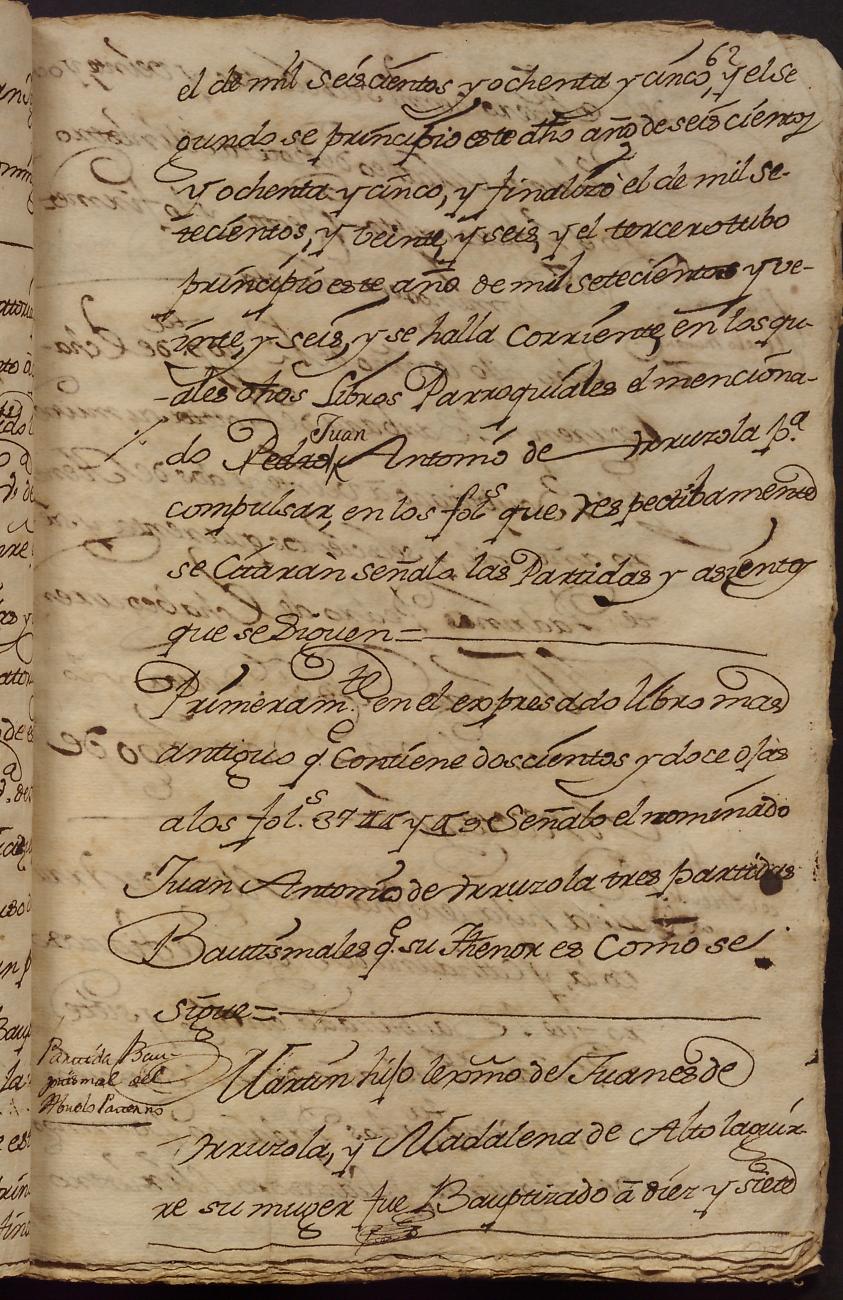 62
el de mil seiscientos y ochenta y cinco, y el se
gundo se principio este dho año de seis cientos
y ochenta y cinco, y finalizò el de mil se-
tecientos, y veinte, y seis, y el tercero tubo
principio este año de mil setecientos y ve-
inte, y seis, y se halla Corriente, en los qu-
ales dhos Libros Parroquiales el menciona-
do Pedro Juan Antonio de Yrruzola p.ª
compulsar, en los fol.s que, respectibamente
se Citaràn señalo las Partidas y asientos
que se siguen=
Primeram.te en el expresado libro mas
antiguo q.e Contiene doscientos y doce ojas
a los fol.s 37 y Señalo el nominado
Juan Antonio de Yrruzola tres partidas
Bautismales q.e su thenor es Como se
sigue=
Partida Bau-
tismal del
Abuelo Paterno
Martin hijo lexmo de Juanes de
Yrruzola, y Madalena de Altolaguir-
re su muger fue Bauptizado â diez y siete